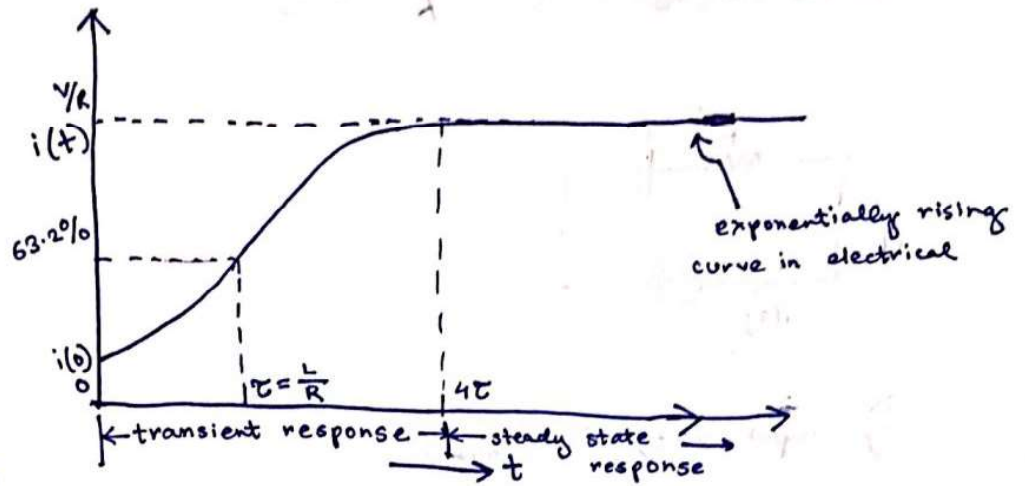 V/R
i(t)
63.2%
i(0)
0
τ = L/R
4τ
exponentially rising
curve in electrical
transient response
steady state
response
t